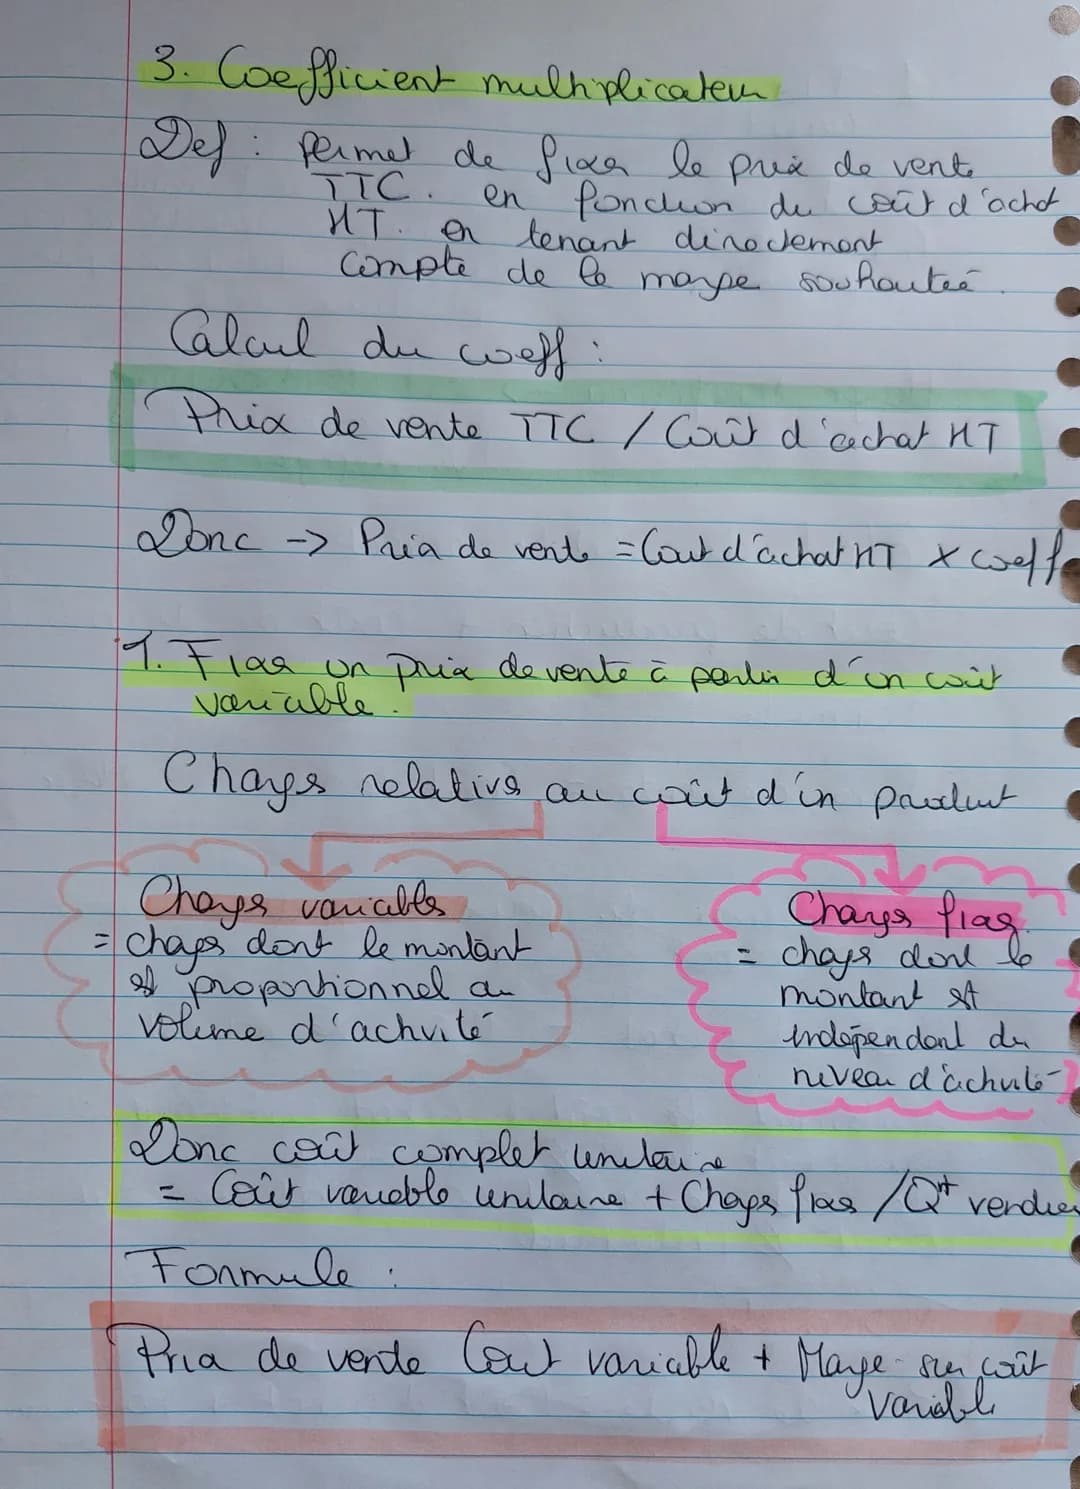 3. Coefficient multiplicateur
Def : permet de fixer le prix de vente
TTC. en fonction du coût d'achat
HT. en tenant directement
compte de la marge souhaitée.
Calcul du coeff :
Prix de vente TTC / Coût d'achat HT
Donc -> Prix de vente = Cout d'achat HT x coeff
1. Fixer un prix de vente à partir d'un coût
variable.
Charges relatives au coût d'un produit
Charges variables
= charges dont le montant
est proportionnel au
volume d'activité
Charges fixes.
= charges dont le
montant est
indépendant du
niveau d'activité
Donc coût complet unitaire
= Coût variable unitaire + Charges fixes / Qt vendues
Formule :
Prix de vente Cout variable + Marge sur coût
variable